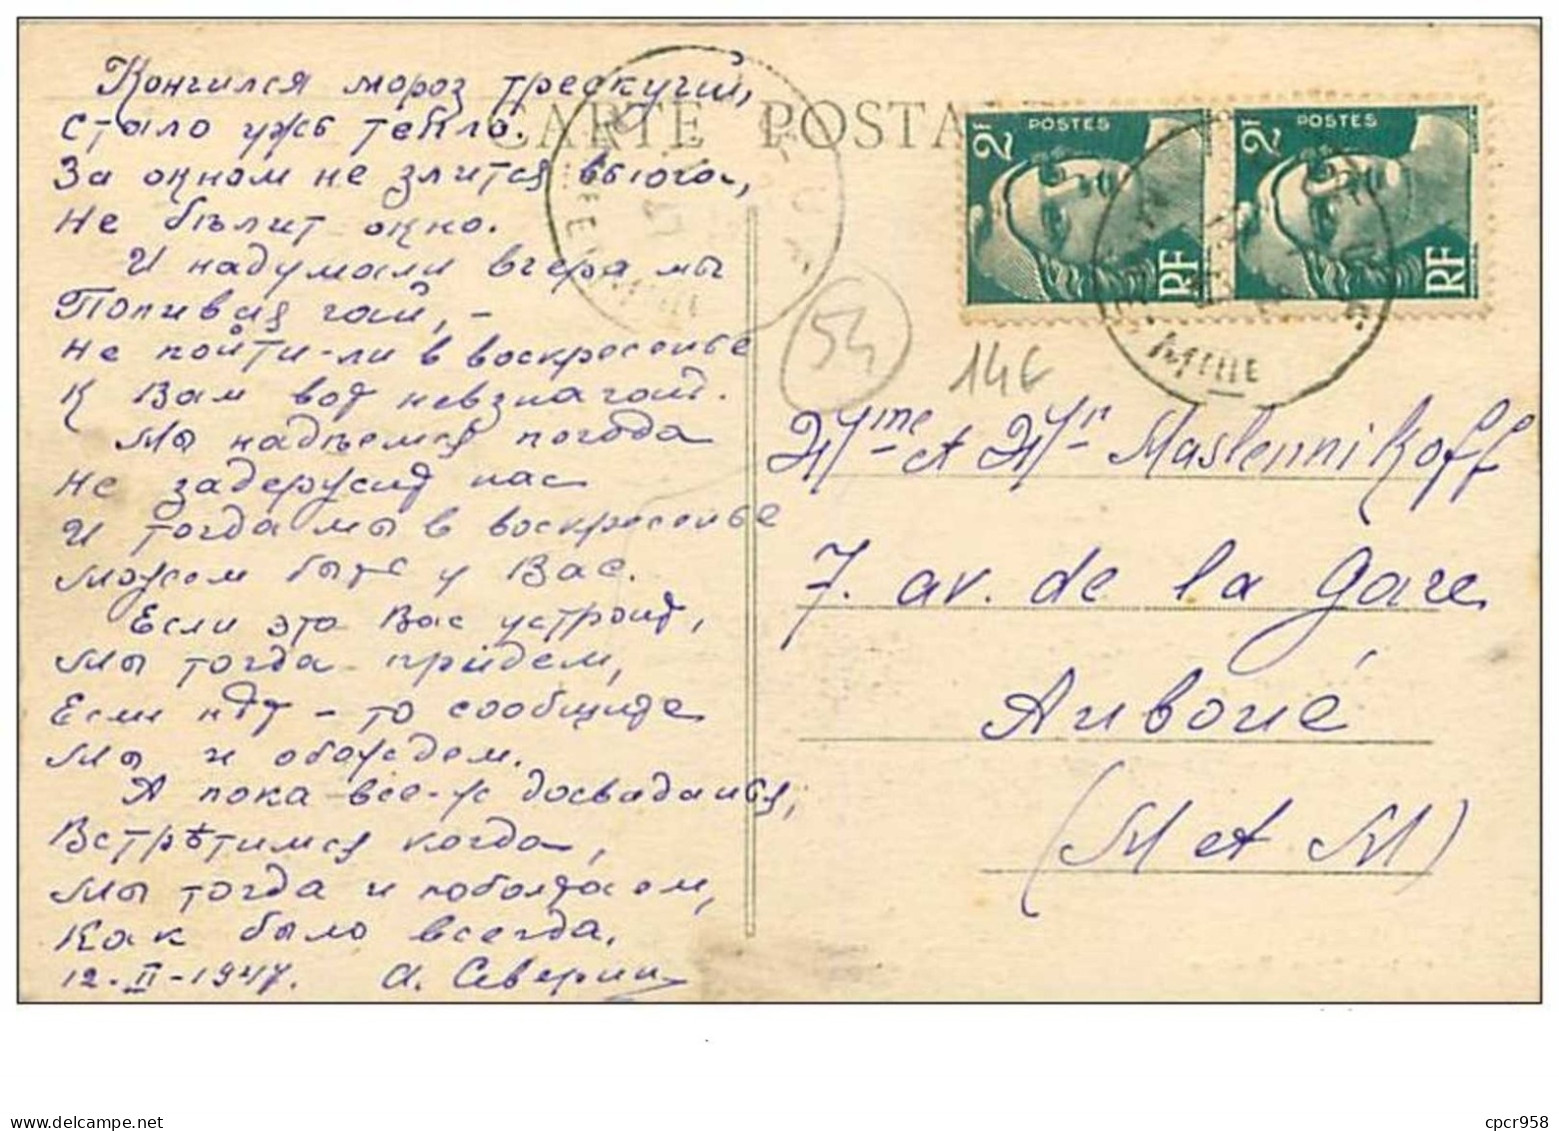 Кончился мороз трескучий,
стало ужъ тепло.
За окном не злится вьюга,
Не бѣлит окно.
И надумали вчера мы
Попивая чай, -
Не пойти-ли в воскресенье
К Вам вот невзначай.
Мы надѣемся погода
Не задержит нас
И тогда мы в воскресенье
Можем быть у Вас.
Если это Вас устроит,
Мы тогда придем,
Если нѣт - то сообщите
Мы и обождем.
А пока все-ж досвиданья,
Встрѣтимся когда,
Мы тогда и поболтаем,
Как было всегда.
12-II-1947. А. Северин
CARTE POSTA
2F POSTES RF
2F POSTES RF
54
14€
Mme et Mr Maslennikoff
7. av. de la Gare
Auboué
(M et M)
cpcr958